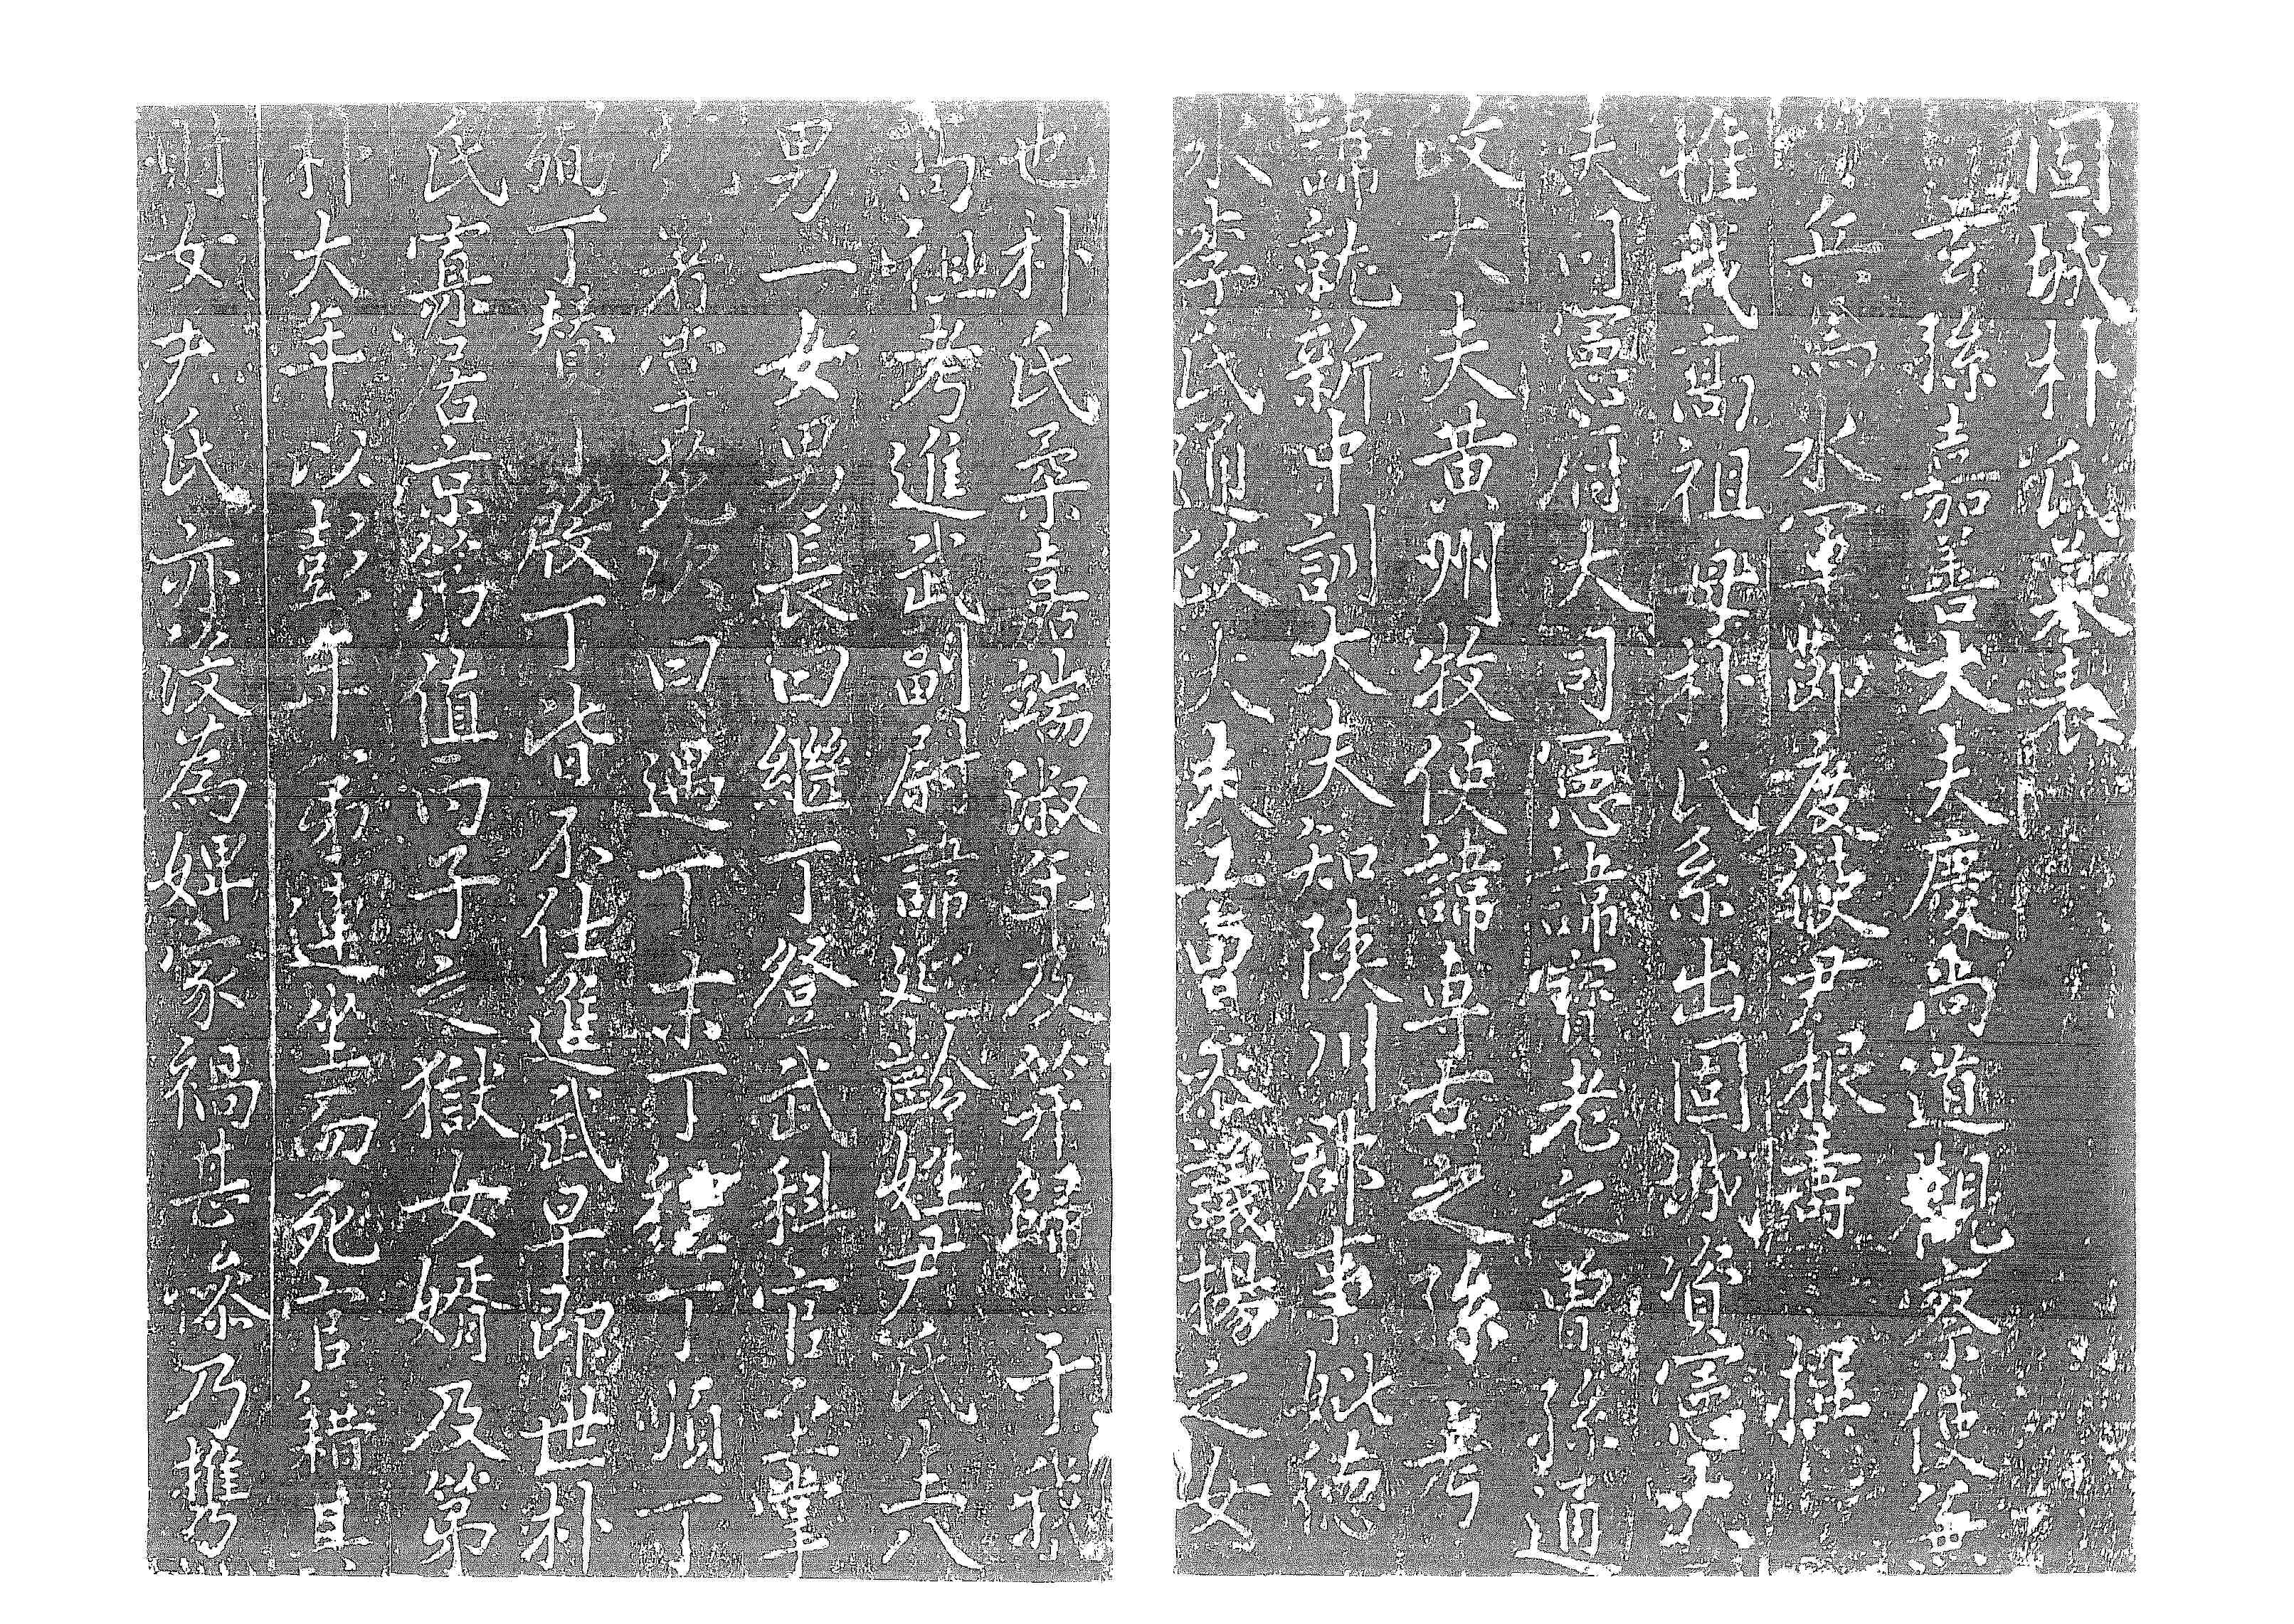 固城朴氏墓表
玄孫嘉善大夫慶尚道觀察使兼
兵馬水軍節度使尹根壽 撰
惟我高祖母朴氏系出固城資憲大
夫司憲府大司憲諱寶老之曾孫通
政大夫黃州牧使諱專古之孫 考
諱龍新中訓大夫知陜川郡事妣德
水李氏通政大夫工曹參議揚之女
也朴氏柔嘉端淑年及笄歸 于我
高祖考進武副尉諱延齡姓尹氏生八
男一女男長曰繼丁登武科官華
者掌苑次曰遇丁丁 丁 丁順丁
殖丁贊 殷丁皆不仕進武早即世朴
氏寡居京第值丙子之獄女婿及第
朴大年以彭年弟連坐而死官籍其
財女尹氏亦沒為婢家禍甚慘乃攜